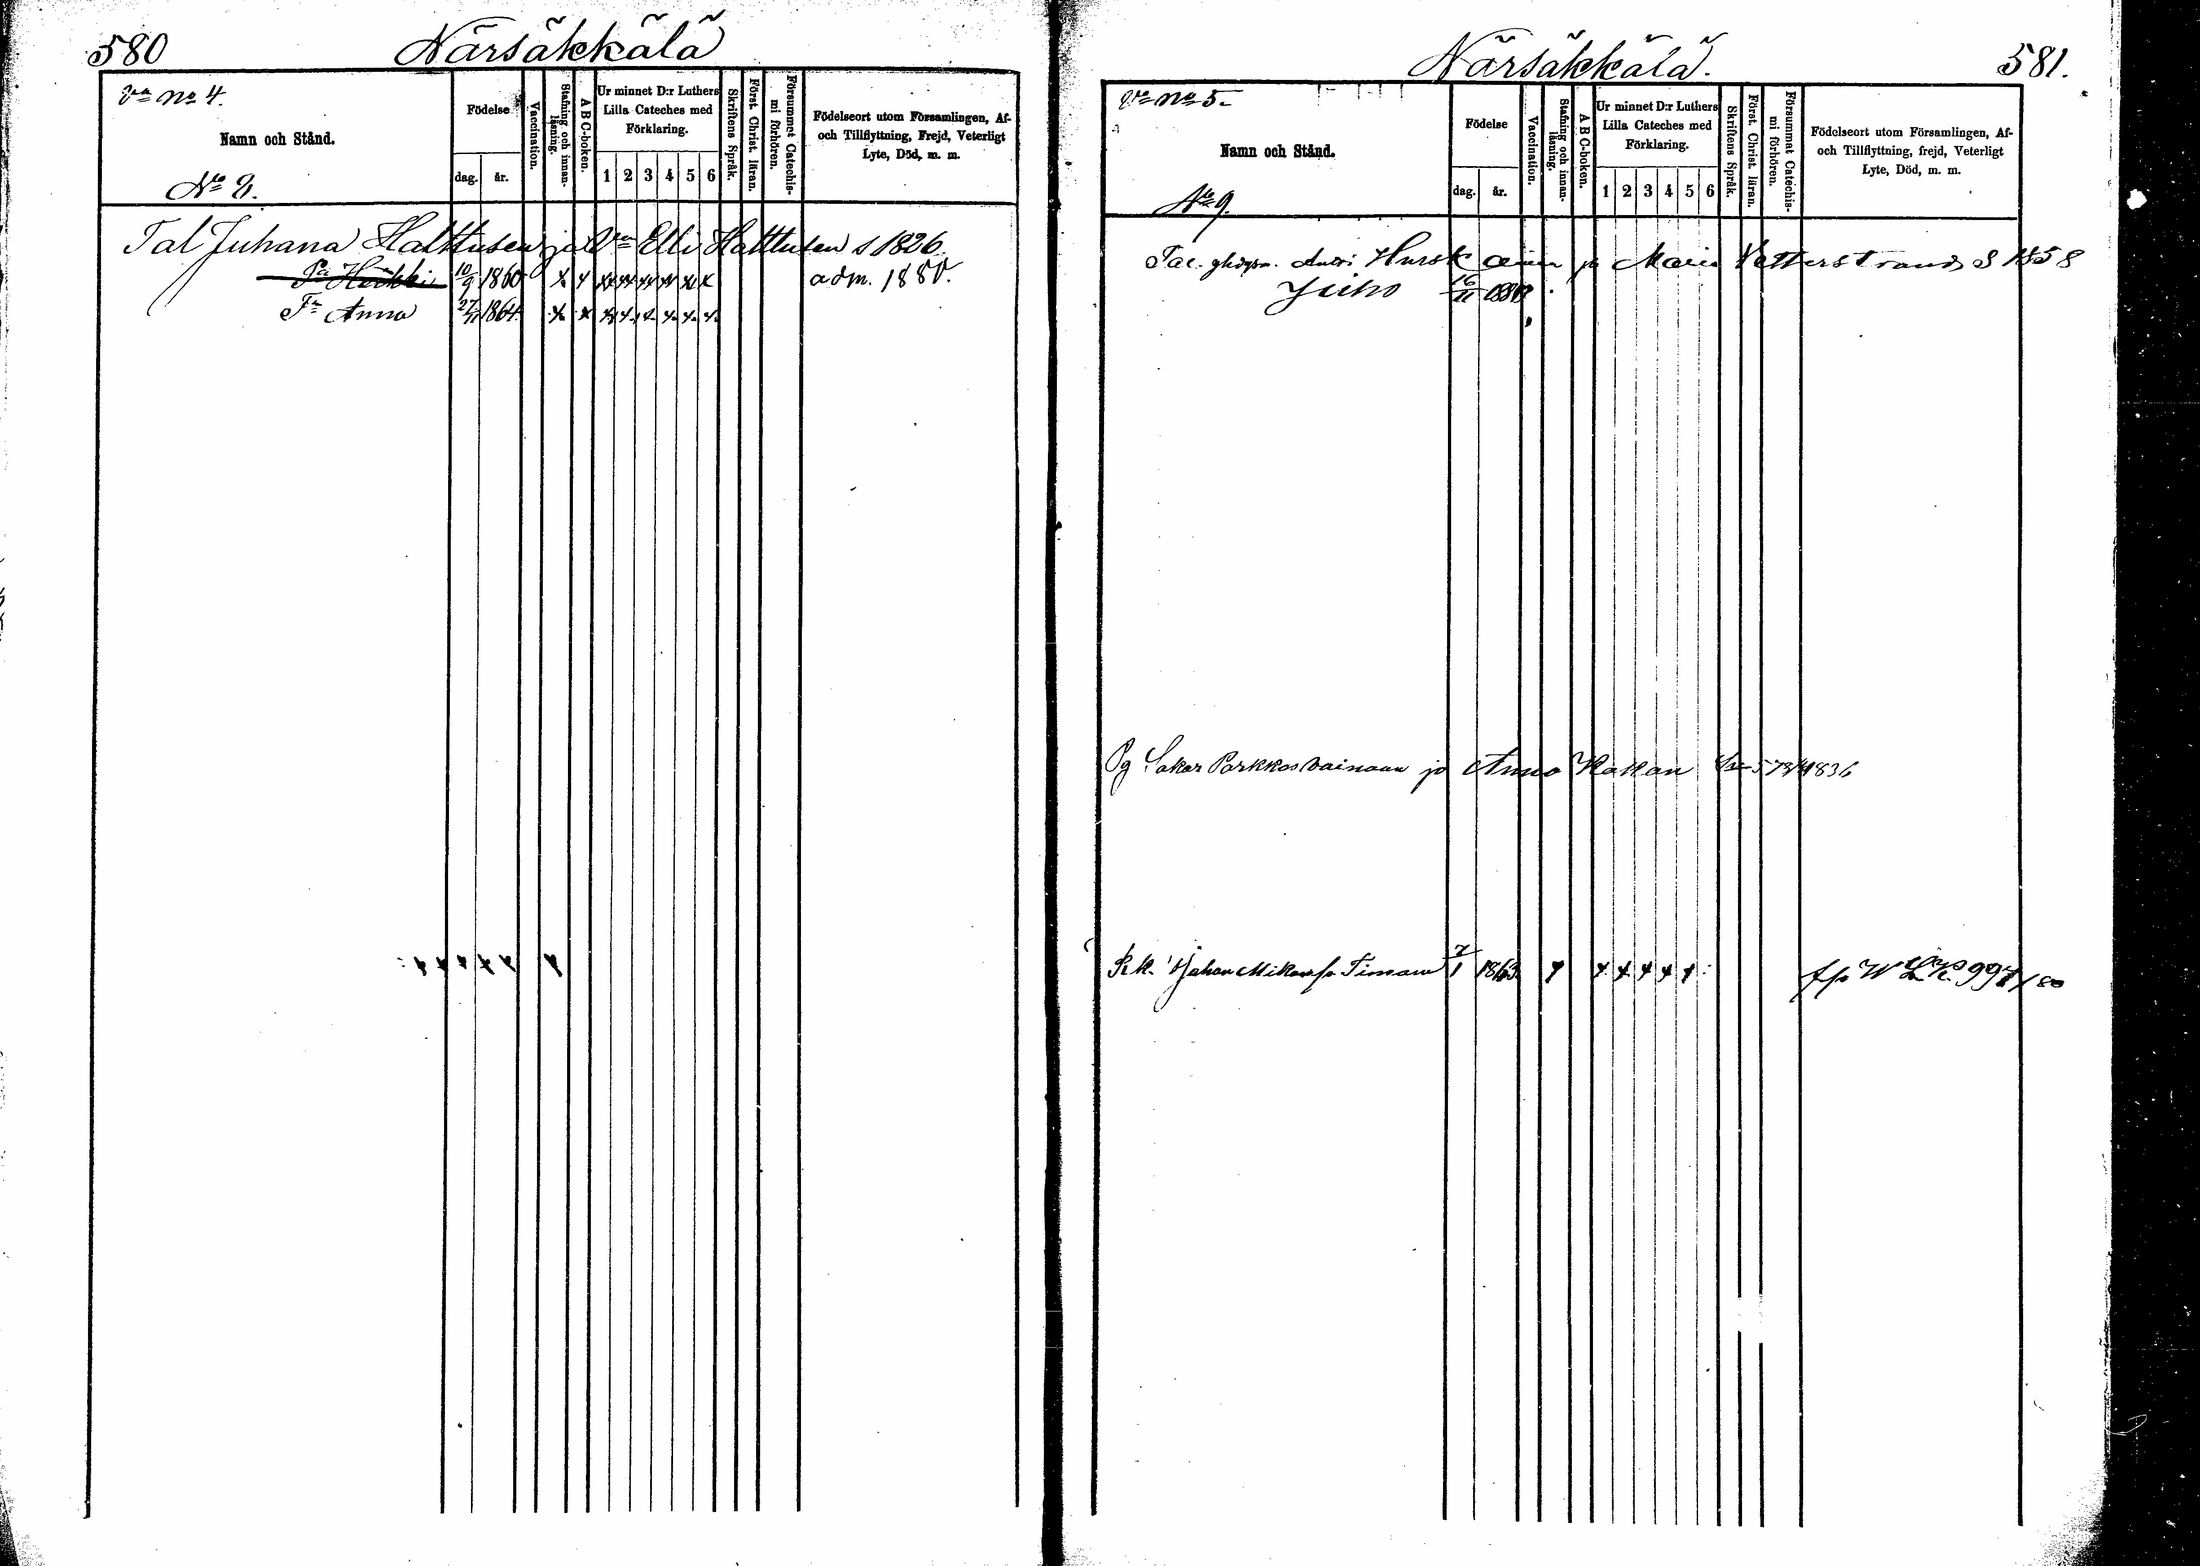 580
Närsäkkälä
Va No 4.
Namn och Stånd.
No 8.
Födelse
dag.
år.
Vaccination.
Stafning och innan-
läsning.
A B C-boken.
Ur minnet D:r Luthers
Lilla Cateches med
Förklaring.
1 2 3 4 5 6
Skriftens Språk.
Först. Christ. läran.
Försummat Catechis-
mi förhören.
Födelseort utom Församlingen, Af-
och Tillflyttning, Frejd, Veterligt
Lyte, Död, m. m.
Tal Juhana Halttusen ja Va Elli Halttusen s 1826.
Pa Heikki 10/9 1860 x x x x x x x x adm. 1880.
Fr Anna 27/11 1864 x x x x x x x x
x x x x x x
Närsäkkälä.
581.
Va No 5.
Namn och Stånd.
No 9.
Födelse
dag.
år.
Vaccination.
Stafning och innan-
läsning.
A B C-boken.
Ur minnet D:r Luthers
Lilla Cateches med
Förklaring.
1 2 3 4 5 6
Skriftens Språk.
Först. Christ. läran.
Försummat Catechis-
mi förhören.
Födelseort utom Församlingen, Af-
och Tillflyttning, frejd, Veterligt
Lyte, Död, m. m.
Antti Hurskainen ja Maria Vetterstrand S 1858
Juho 16/11
Pg Sakar Parkkos vainaan ja Anna Kakon 1836
Rk. Johan Mikonp. Timonen 7/1 1863 x x x x x x